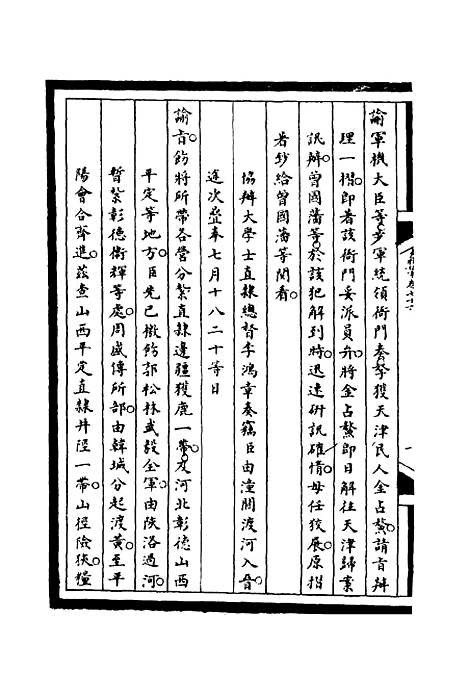 諭軍機大臣等步軍統領衙門奏拏獲天津民人金占鰲請旨辦
理一摺即著該衙門妥派員弁將金占鰲即日解往天津歸案
訊辦曾國藩等於該犯解到時迅速研訊確情毋任狡展原摺
著鈔給曾國藩等閱看
協辦大學士直隸總督李鴻章奏竊臣由潼關渡河入晉
迭次疊奉七月十八二十等日
諭旨飭將所帶各營分紮直隸邊疆獲鹿一帶及河北彰德山西
平定等地方臣先已檄飭郭松林武毅全軍由陝洛過河
暫紮彰德衛輝等處周盛傳所部由韓城分起渡黃至平
陽會合齊進茲查山西平定直隸井陘一帶山徑險狹糧